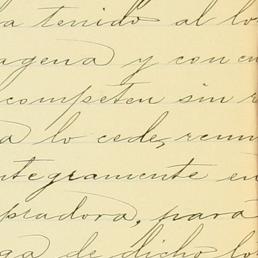 ha tenido al lo
agena y con en
competen sin r
a lo cede, renun
ntegramente en
pradora, para
ga de dicho lo